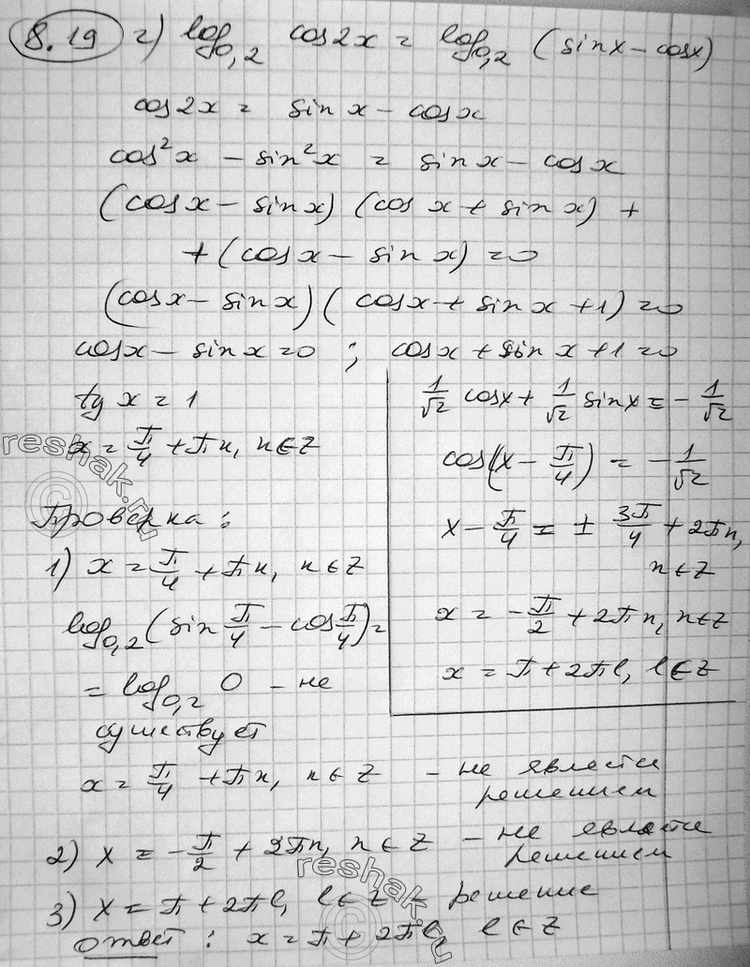 8.19 г) log₀,₂ cos2x = log₀,₂ (sinx – cosx)
cos2x = sin x – cosx
cos²x – sin²x = sinx – cosx
(cosx – sinx) (cos x + sin x) +
+ (cosx – sinx) = 0
(cosx – sinx) (cosx + sinx + 1) = 0
cosx – sinx = 0 ; cosx + sin x + 1 = 0
tg x = 1
x = π/4 + πn, n ∈ Z
1/√2 cosx + 1/√2 sinx = – 1/√2
cos(x – π/4) = – 1/√2
x – π/4 = ± 3π/4 + 2πn,
n ∈ Z
x = – π/2 + 2πn, n ∈ Z
x = π + 2πl, l ∈ Z
Проверка :
1) x = π/4 + πn, n ∈ Z
log₀,₂ (sin π/4 – cos π/4) =
= log₀,₂ 0 – не
существует
x = π/4 + πn, n ∈ Z – не является
решением
2) x = – π/2 + 2πn, n ∈ Z – не является
решением
3) x = π + 2πl, l ∈ Z – решение
ответ : x = π + 2πl, l ∈ Z
reshak.ru
reshak.ru